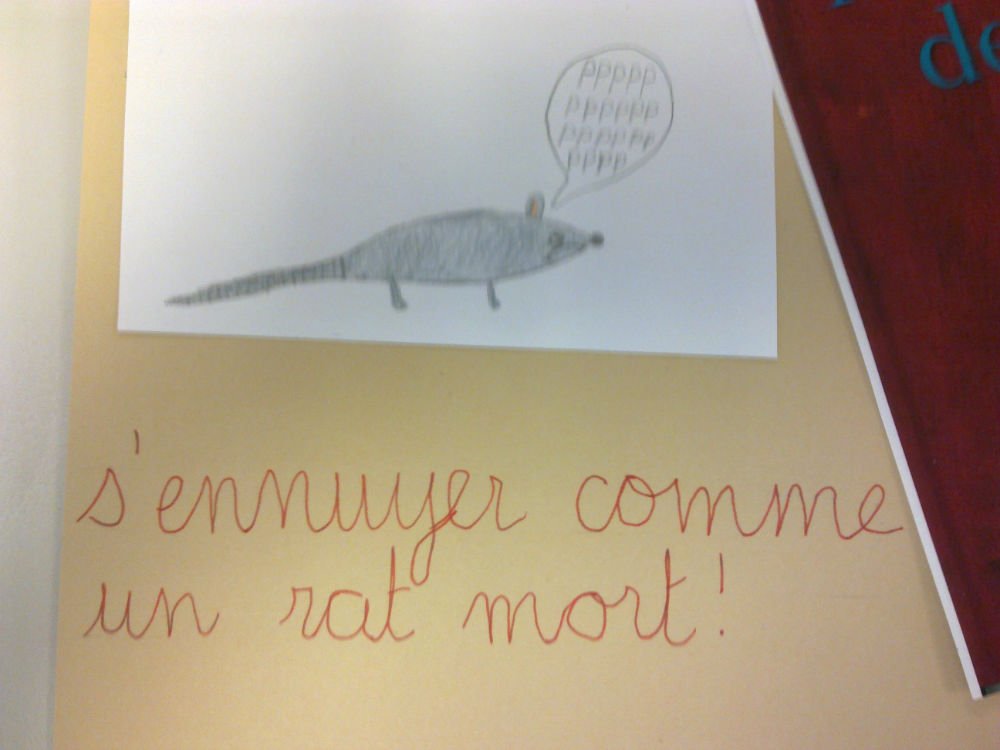 ppppp
pppppp
pppppp
pppp
de
s'ennuyer comme
un rat mort!